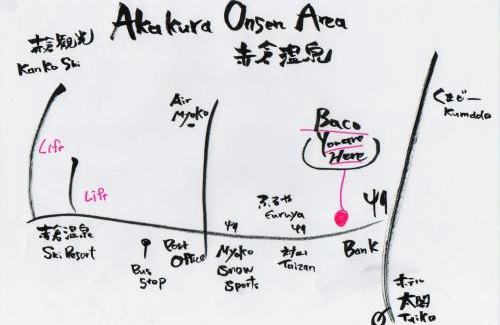 Akakura Onsen Area
赤倉温泉
赤倉観光
Kanko Ski
Air
Myoko
Baco
You are
Here
くまどー
Kumado
Lift
Lift
ふるや
Furuya
赤倉温泉
Ski Resort
Bus
Stop
Post
Office
Myoko
Snow
Sports
Taizan
Bank
ホテル
太閤
Taiko